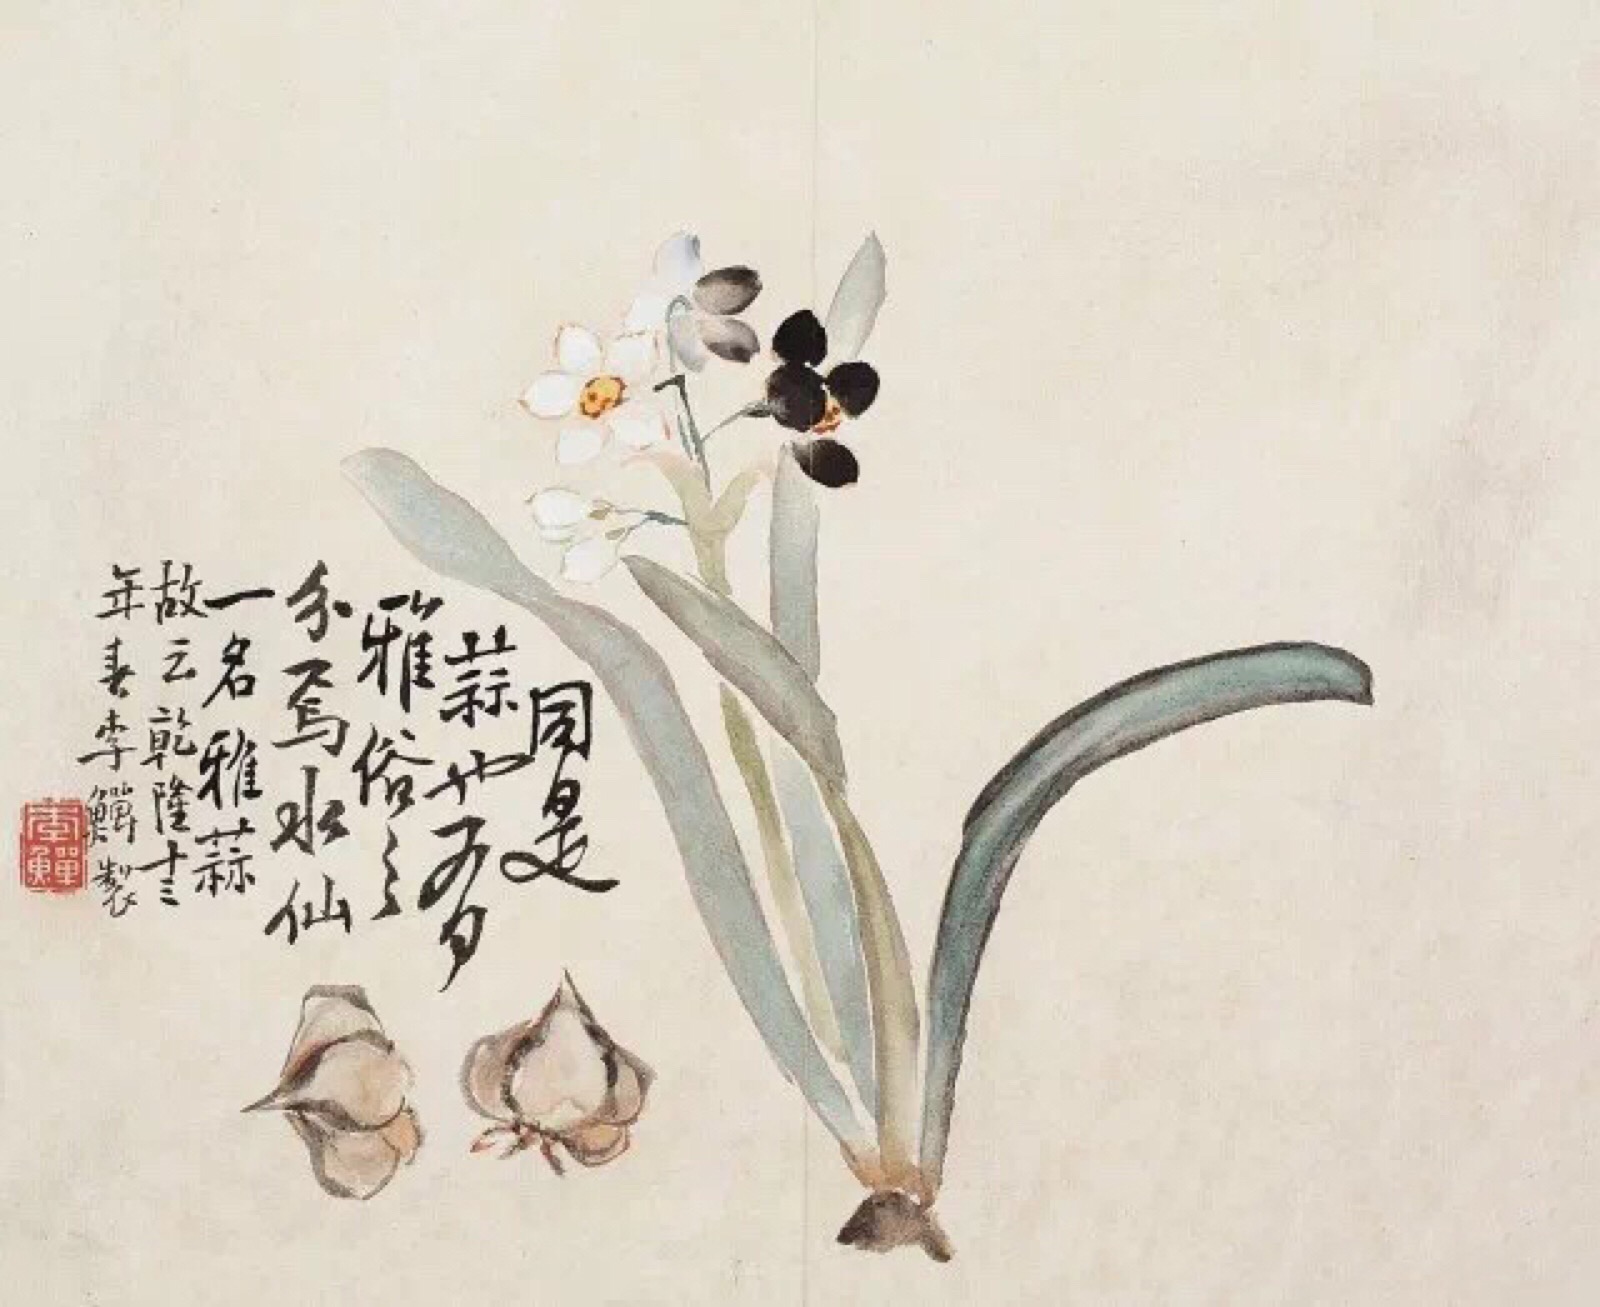 同是
蒜也而有
雅俗之
分焉水仙
一名雅蒜
故云乾隆十三
年春李鱓製
李鱓